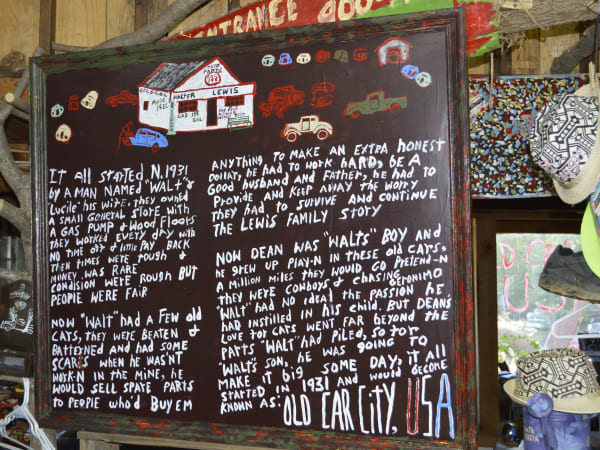 ENTRANCE
AUTO PARTS
GENERAL STORE
HARPER
LEWIS
GAS
OIL
It all started N. 1931
by a man named "Walt" &
Lucile his wife, they owned
a small general store with
a gas pump & wood floors
they worked every day with
no time off & little pay back
then times were tough &
money was rare
condision were rough but
people were fair
Now "Walt" had a few old
cats, they were beaten &
batterned and had some
scars when he was'nt
work-N in the mine, he
would sell spare parts
to people who'd buy em
Anything to make an extra honest
dollar, he had to work hard, be a
good husband and father, he had to
provide and keep away the worry
they had to survive and continue
the Lewis family story
Now Dean was "Walts" boy and
he grew up play-N in these old cars,
a million miles they would go pretend-N
they were cowboys & chasing Geronimo
"Walt" had no idea! the passion he
had instilled in his child. But Dean's
love for cars went far beyond the
parts "Walt" had piled, so for
"Walt's son, he was going to
make it big some day, it all
started in 1931 and would become
known as: OLD CAR CITY, USA
USA